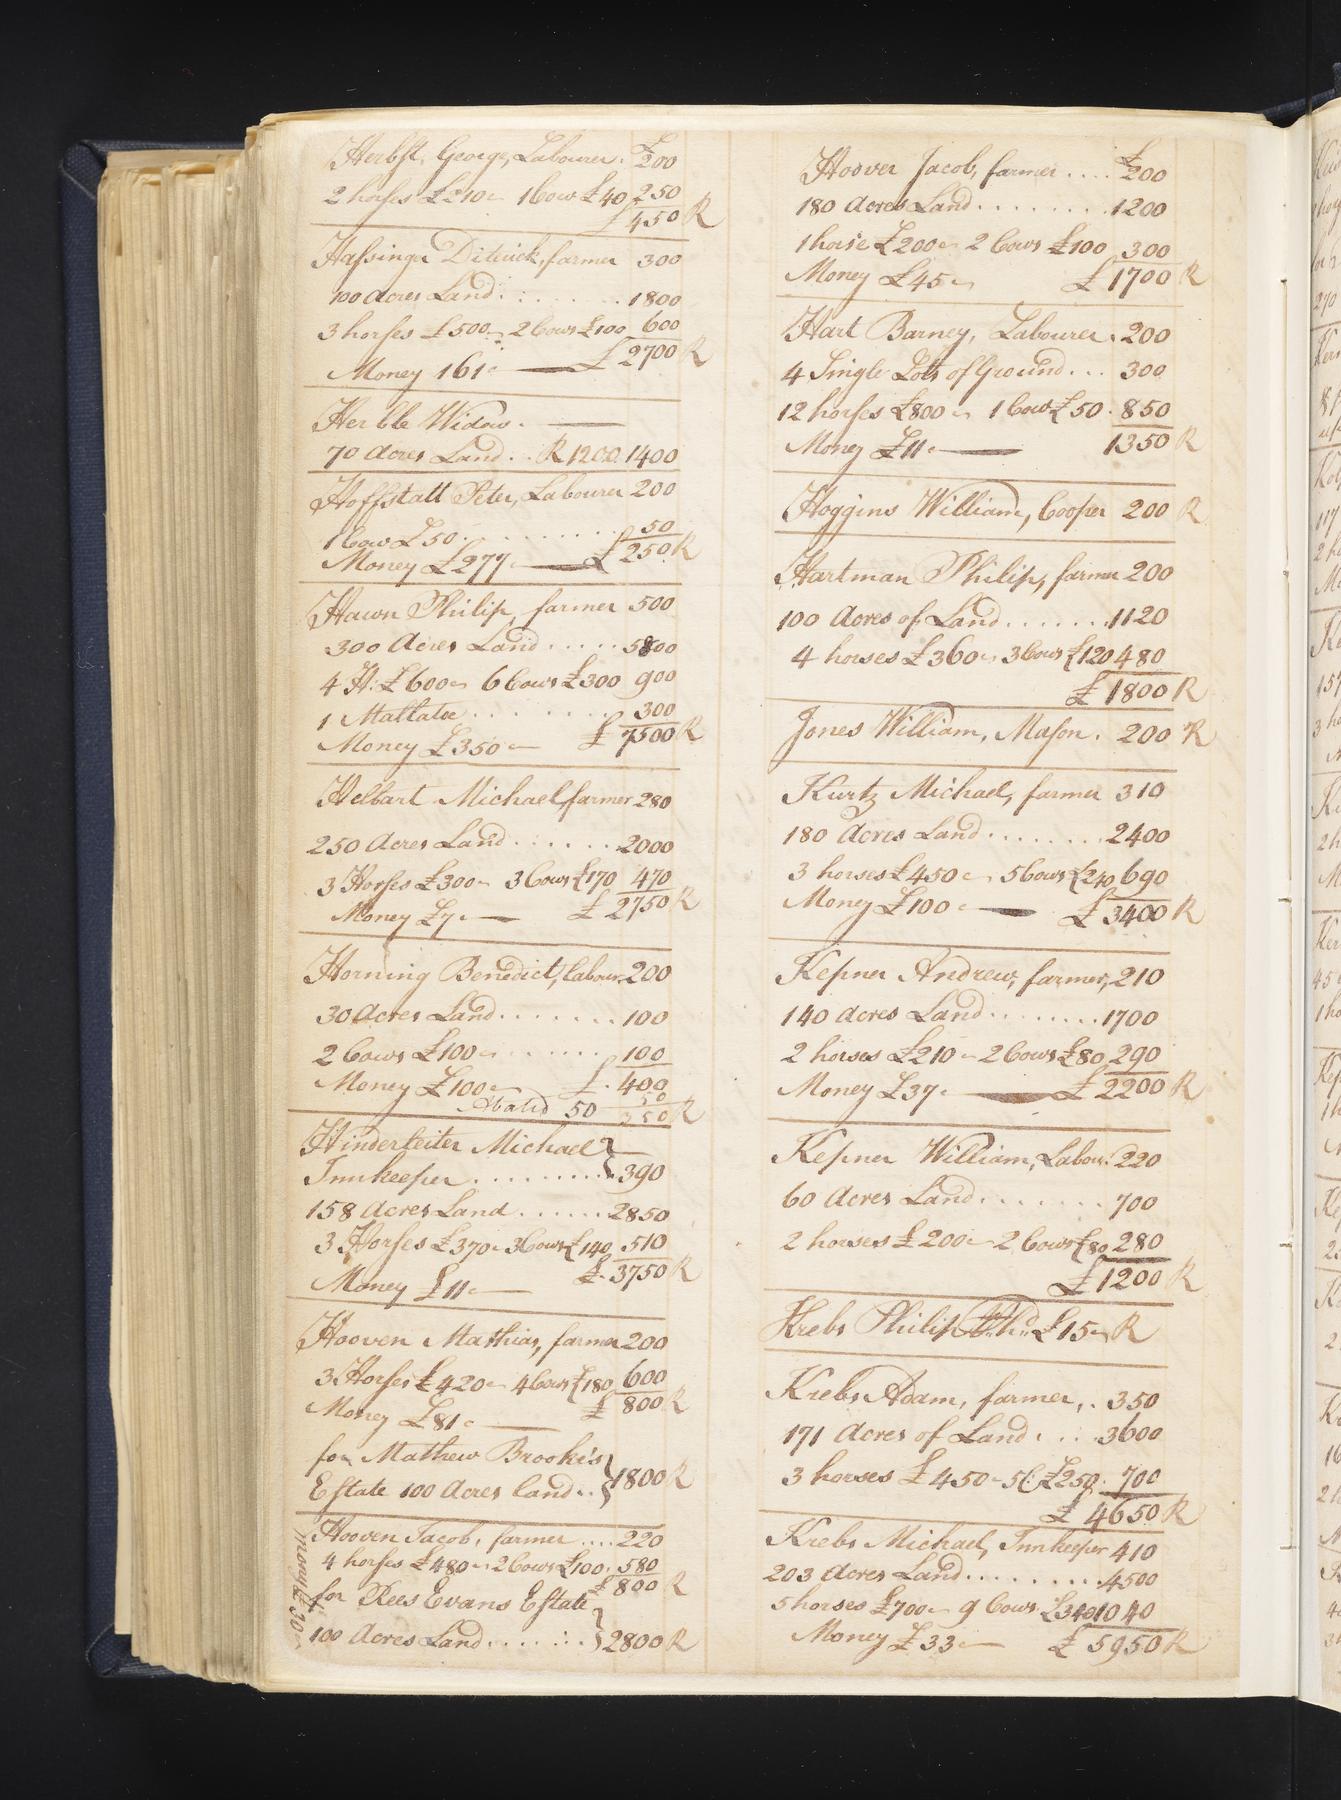 Herbst, George, Labourer. £200
2 horses £210 1 Cow £40 250
£450 R
Hassinger Ditrick, farmer 300
100 Acres Land . . . . . . . 1800
3 horses £500 2 Cows £100 600
Money 161 £ 2700 R
Herble Widow.
70 Acres Land . . R 1200 1400
Hoffstatt Peter, Labourer 200
1 Cow £50 . . . . . . . . . 50
Money £277 £250 R
Hawn Philip, farmer 500
300 Acres Land . . . . . 5800
4 H: £600 6 Cows £300 900
1 Mallatoe . . . . . . . . 300
Money £350 £ 7500 R
Helbart Michael, farmer 280
250 Acres Land . . . . . . 2000
3 Horses £300 3 Cows £170 470
Money £7 £ 2750 R
Horning Benedict, labour. 200
30 Acres Land . . . . . . . 100
2 Cows £100 . . . . . . . 100
Money £100 £ . 400
Abated 50 50
350 R
Hinderleiter Michael }
Innkeeper . . . . . . . . . } 390
158 Acres Land . . . . . . 2850
3 Horses £370 3 Cows £140 510
Money £11 £. 3750 R
Hooven Mathias, farmer 200
3 Horses £420 4 Cows £180 600
Money £81 £ 800 R
for Mathew Brooke's }
Estate 100 Acres land . . } 1800 R
Hooven Jacob, farmer .... 220
4 horses £480 2 Cows £100. 580
£800 R
for Rees Evans Estate }
100 Acres Land . . . . . . . } 2800 R
money £30
Hoover Jacob, farmer .... £200
180 Acres Land . . . . . . . . . 1200
1 horse £200 2 Cows £100 300
Money £45 £ 1700 R
Hart Barney, Labourer. 200
4 Single Lots of Ground . . . 300
12 horses £800 1 Cow £50. 850
Money £11 1350 R
Hoggins William, Cooper 200 R
Hartman Philip, farmer 200
100 Acres of Land . . . . . . . 1120
4 horses £360 3 Cows £120 480
£ 1800 R
Jones William, Mason. 200 R
Kurtz Michael, farmer 310
180 Acres Land . . . . . . . . 2400
3 horses £450 5 Cows £240 690
Money £100 £ 3400 R
Kepner Andrew, farmer, 210
140 acres Land . . . . . . . . 1700
2 horses £210 2 Cows £80 290
Money £37 £ 2200 R
Kepner William, Labour. 220
60 Acres Land . . . . . . . 700
2 horses £200 2 Cows £80 280
£ 1200 R
Krebs Philip £15 R
Krebs Adam, farmer, . 350
171 Acres of Land . . . . 3600
3 horses £450 5 C: £250 . 700
£ 4650 R
Krebs Michael, Innkeeper 410
203 Acres Land . . . . . . . . . 4500
5 horses £700 9 Cows £340 1040
Money £33 £ 5950 R